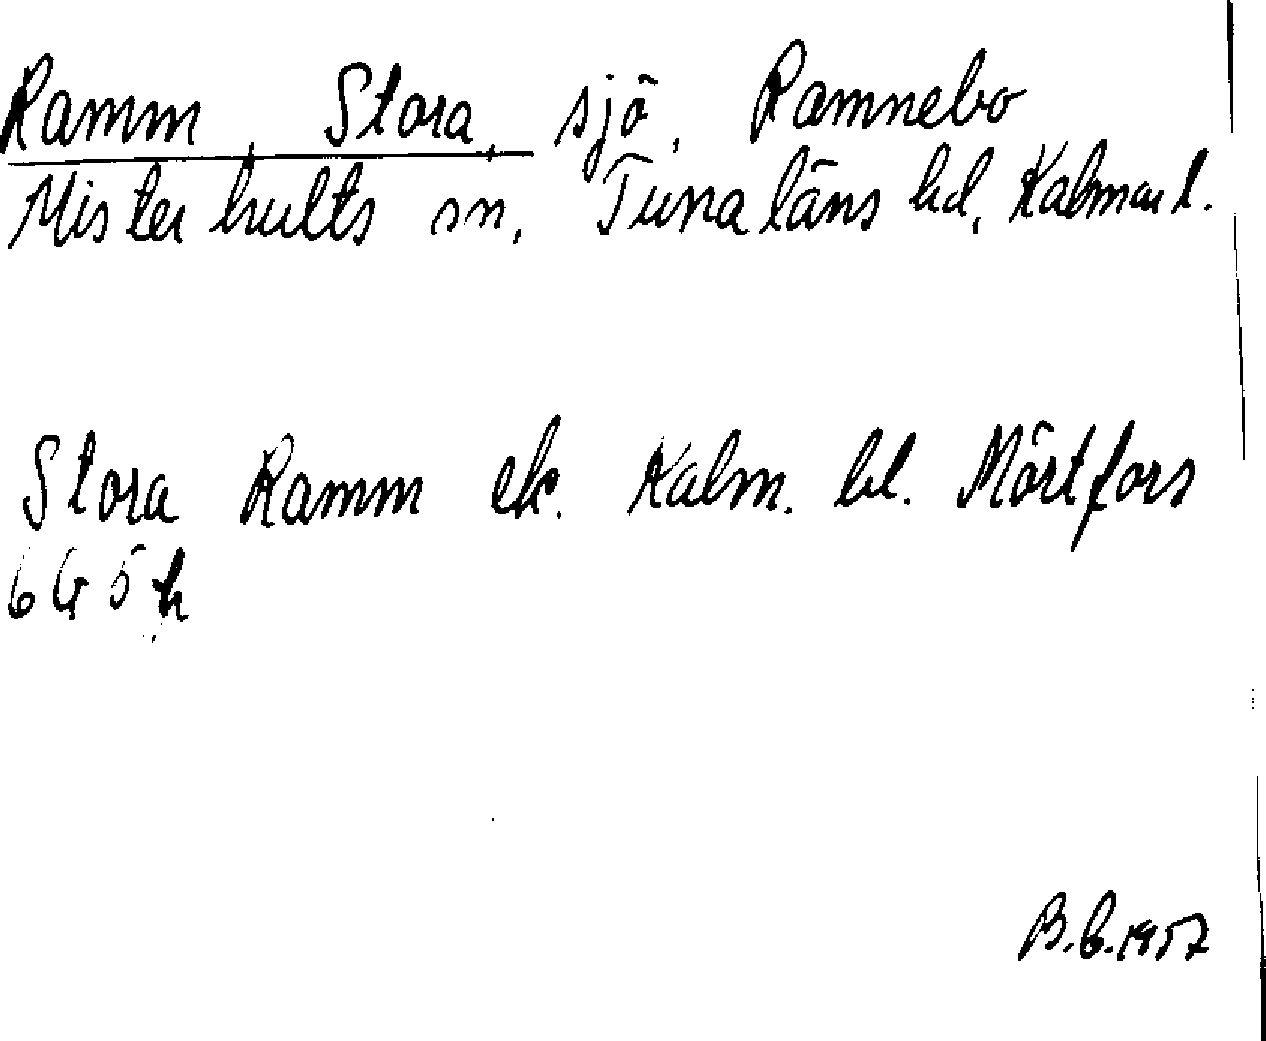 Ramm, Stora, sjö, Ramnebo
Misterhults sn, Tunaläns hd, Kalmar l.
Stora Ramm ek. Kalm. bl. Mörtfors
6G5h
B.b.1957